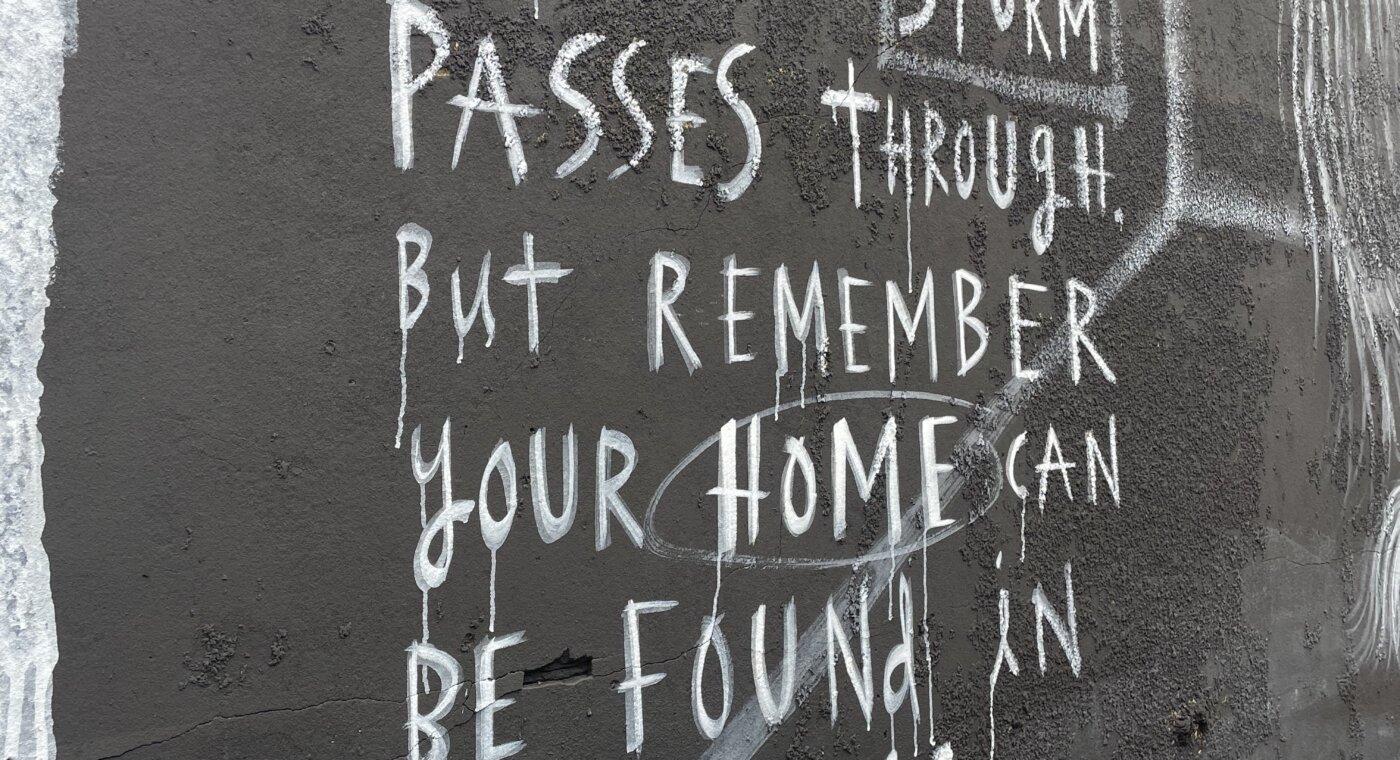 STORM
PASSES tHROUgH.
But REMEMBER
yOUR HOME CAN
BE FOUNd iN